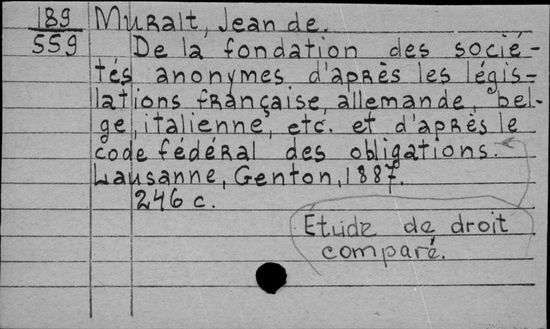 189 Muralt, Jean de.
559 De la fondation des socié-
tés anonymes d'après les légis-
lations française, allemande, bel-
ge, italienne, etc. et d'après le
code fédéral des obligations.
Lausanne, Genton, 1887.
246 c.
Etude de droit
comparé.